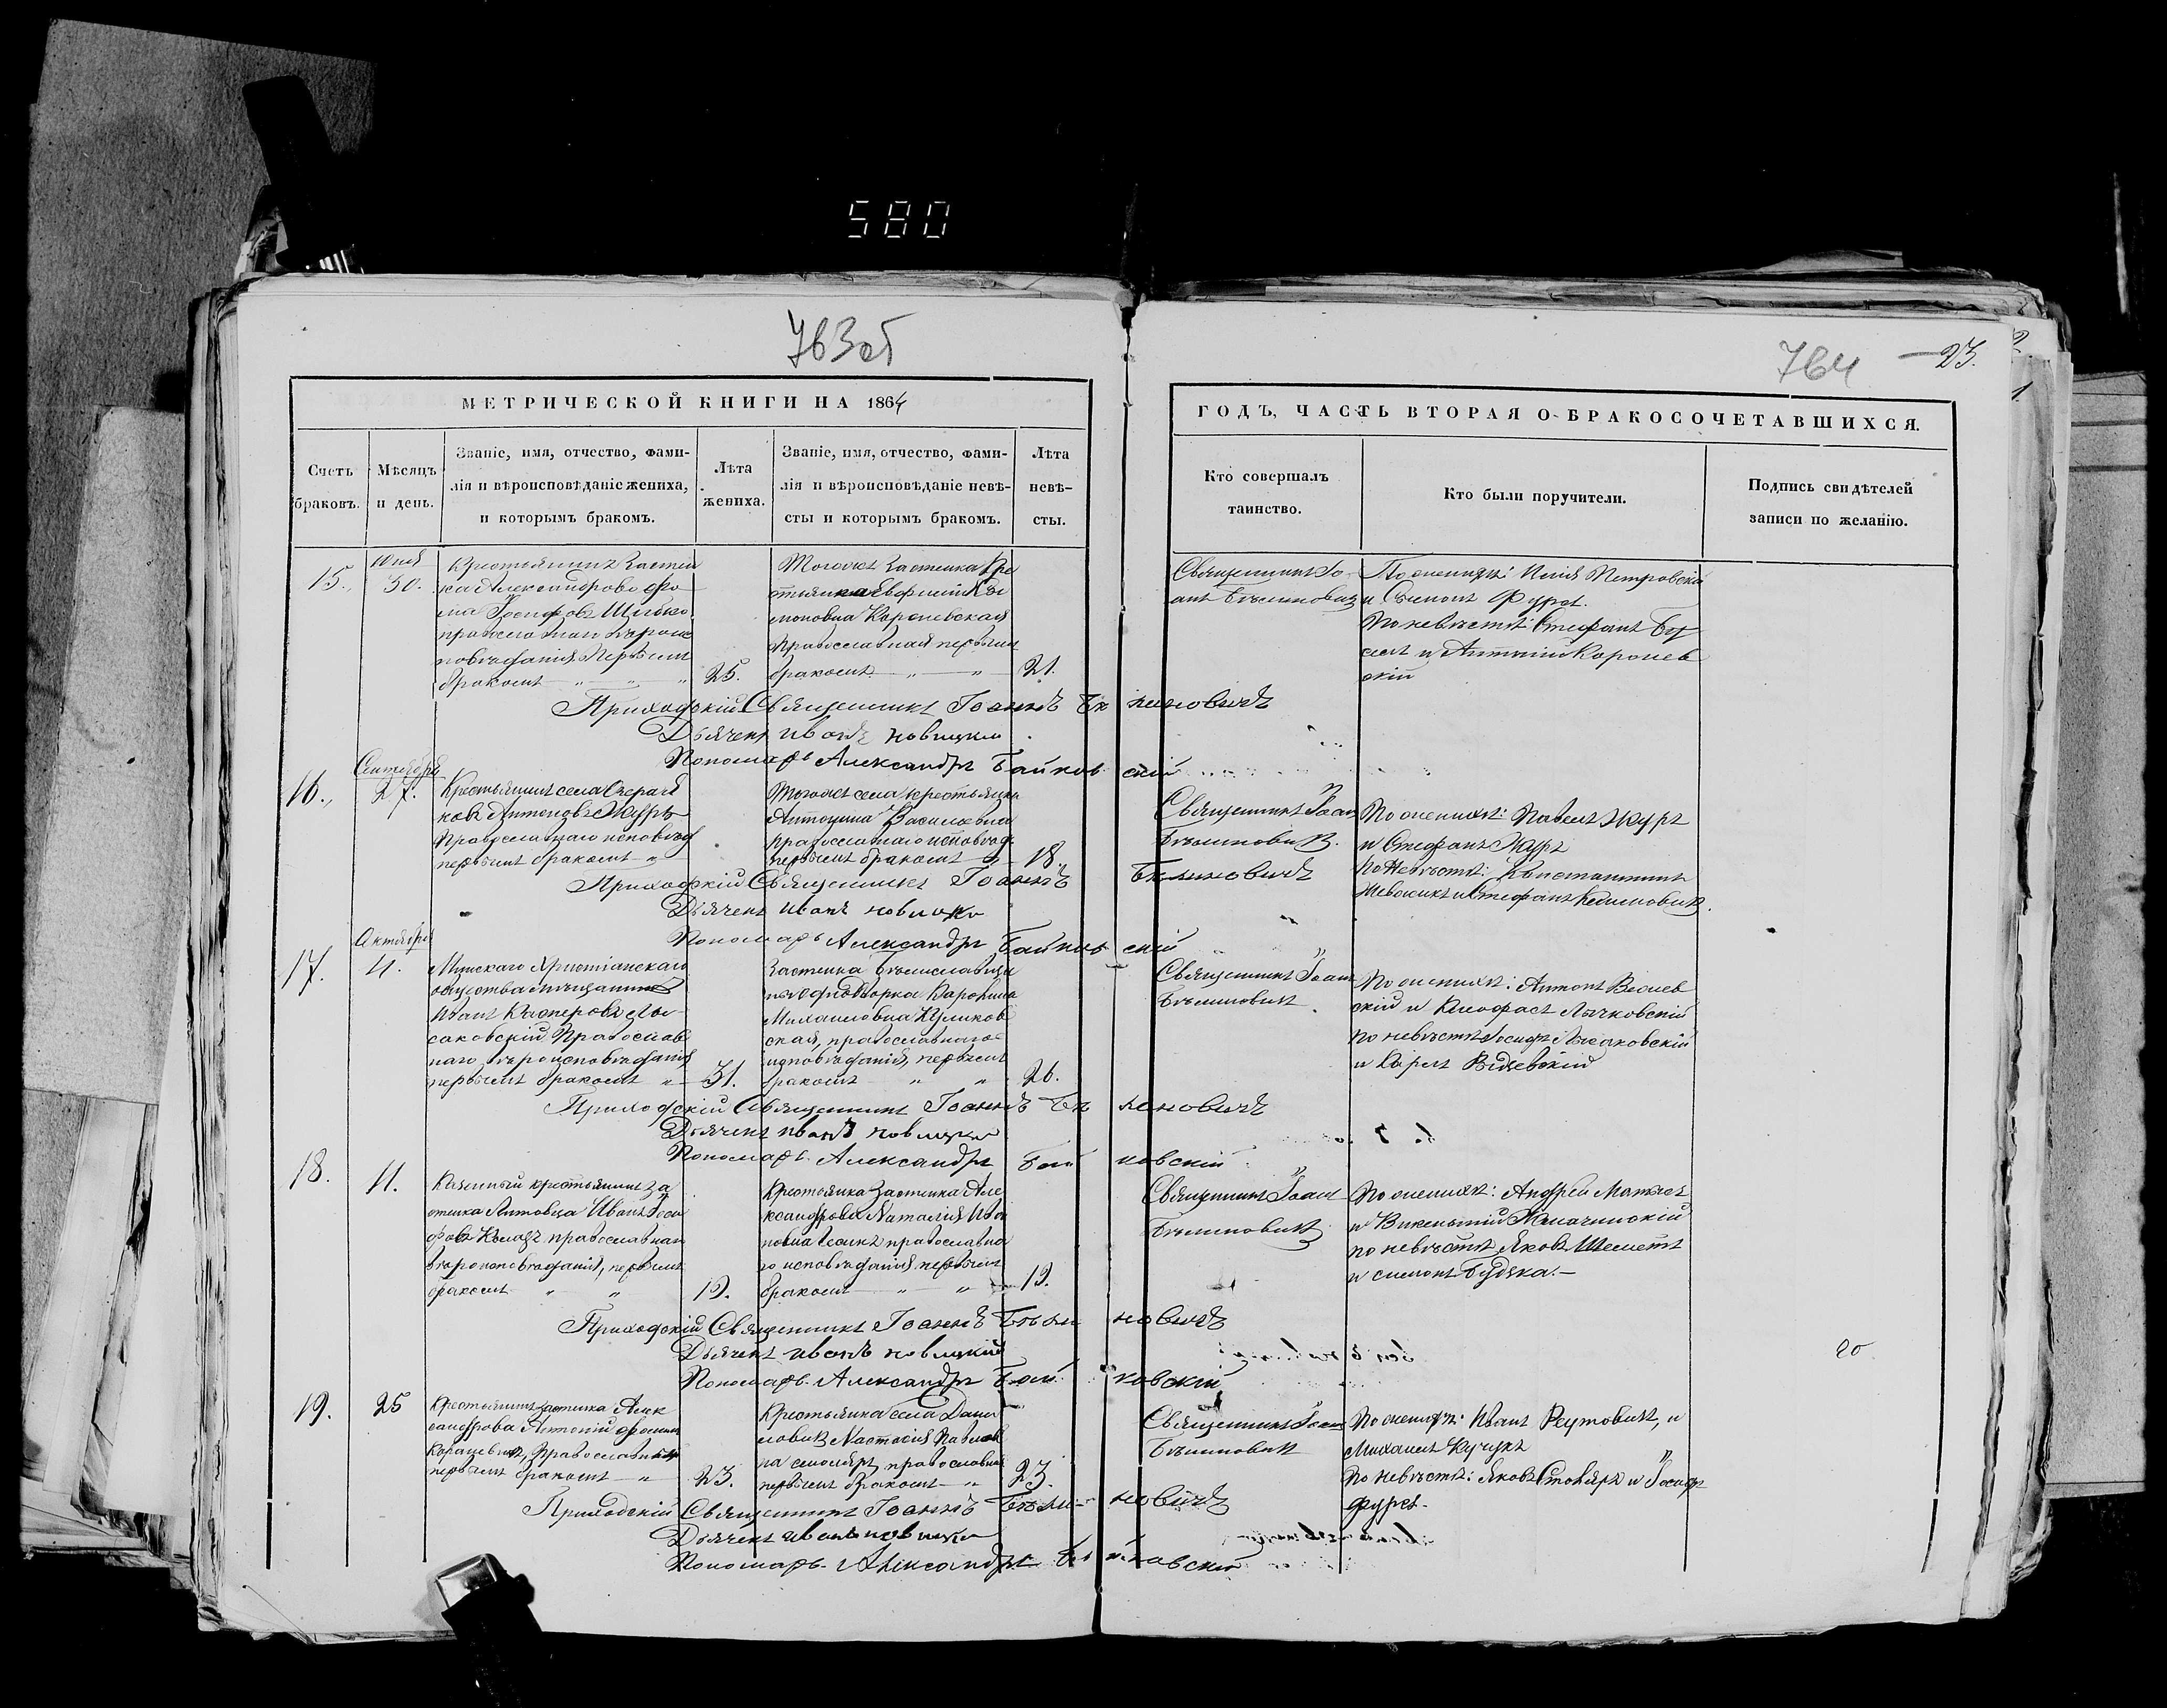 580
763об
764
23.
МЕТРИЧЕСКОЙ КНИГИ НА 1864
ГОДЪ, ЧАСТЬ ВТОРАЯ О БРАКОСОЧЕТАВШИХСЯ.
Счетъ браковъ.
Мѣсяцъ и день.
Званіе, имя, отчество, фами-
лія и вѣроисповѣданіе жениха,
и которымъ бракомъ.
Лѣта жениха.
Званіе, имя, отчество, фами-
лія и вѣроисповѣданіе невѣ-
сты и которымъ бракомъ.
Лѣта невѣ-
сты.
Кто совершалъ
таинство.
Кто были поручители.
Подпись свидѣтелей
записи по желанію.
15.
30.
Крестьянинъ Застен
ка Александрово Фо
ма Іосифовъ
православнаго вѣроис
повѣданія Первымъ
бракомъ
25.
Тогоже Застенка Кре
стьянка
Каролевская
Православная первымъ
бракомъ
21.
Священникъ Іо
аннъ Бѣлиновичъ
По женихѣ: Илія Петровскій
и Симонъ Фурсъ.
По невѣстѣ: Стефанъ
и Антоній Королев
скій
Приходскій Священникъ Іоаннъ Бѣлиновичъ
Дьячекъ Иванъ Новицкій
Пономарь Александръ Байковскій
16.
Сентября
27.
Крестьянинъ села
Антоновъ Журъ
Православнаго исповѣд
первымъ бракомъ
Тогоже села крестьянка
Антонина Васильевна
православнаго исповѣд.
первымъ бракомъ
18.
Священникъ Іоан
Бѣлиновичъ.
По женихѣ: Павелъ Журъ
и Стефанъ Журъ
По Невѣстѣ: Константинъ
и Стефанъ
Приходскій Священникъ Іоаннъ Бѣлиновичъ
Дьячекъ Иванъ Новицкій
Пономарь Александръ Байковскій
17.
Октября
11.
Минскаго Христіанскаго
общества мѣщанинъ
Иванъ Касперовъ Лы-
саковскій, Православ
наго вѣроисповѣданія
первымъ бракомъ
31.
Застенка
Каролина
Михаиловна Куликов
ская, православнаго
исповѣданія, первымъ
бракомъ
26.
Священникъ Іоан
Бѣлиновичъ
По женихѣ: Антонъ
скій и Клеофасъ Лычковскій
по невѣстѣ Іосифъ Лысаковскій
и Карлъ
Приходскій Священникъ Іоаннъ Бѣлиновичъ
Дьячекъ Иванъ Новицкій
Пономарь Александръ Байковскій
18.
11.
Казенный крестьянинъ За
стенка Литовца Иванъ Іоси
фовъ православнаго
вѣроисповѣданія, первымъ
бракомъ
19.
Крестьянка Застенка Але
ксандрова Наталія Ива
новна православна
го исповѣданія первымъ
бракомъ
19.
Священникъ Іоан
Бѣлиновичъ
По женихѣ: Андрей
и Викентій
по невѣстѣ Яковъ Шеметъ
и Симонъ Будзка.
Приходскій Священникъ Іоаннъ Бѣлиновичъ
Дьячекъ Иванъ Новицкій
Пономарь Александръ Байковскій
19.
25
Крестьянинъ застенка Алек
сандрова Антоній Фоминъ
Православный
первымъ бракомъ
23.
Крестьянка села Дани
ловичъ Настасія Павлов
на Столяръ, православная
первымъ бракомъ
23.
Священникъ Іоан
Бѣлиновичъ
По женихѣ: Иванъ Реутовичъ, и
Михаилъ Кучукъ
По невѣстѣ: Яковъ Столяръ и Іосифъ
Фурсъ.
Приходскій Священникъ Іоаннъ Бѣлиновичъ
Дьячекъ Иванъ Новицкій
Пономарь Александръ Байковскій
20